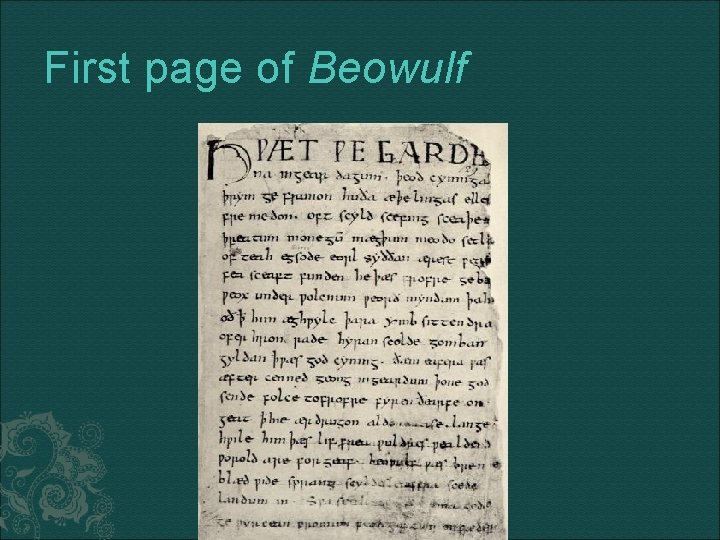 First page of Beowulf
HǷÆT ǷE GARDE
na ingear dagum. þeod cyninga
þrym ge frunon huða æþelingas elle
fre medon. oft scyld scefing sceaþe
þreatum monegū mægþum meodo setl
of teah egsode eorl syððan ærest
fea sceaft funden he þæs frofre geba
ƿeox under ƿolcnum ƿeorð myndum þah
oð þ him æghƿylc þara ymb sittendra
ofer hron rade hyran scolde gomban
gyldan þæs god cyning. ðæm eafera ƿæs
æfter cenned geong ingeardum þone god
sende folce tofrofre fyren ðearfe on
geat þhie ær drugon aldor ase. lange
hƿile him þæs lif frea ƿuldres ƿealdend
ƿorold are forgeaf. beoƿulf ƿæs breme
blæd ƿide sprang scyldes eafera scede
landum in